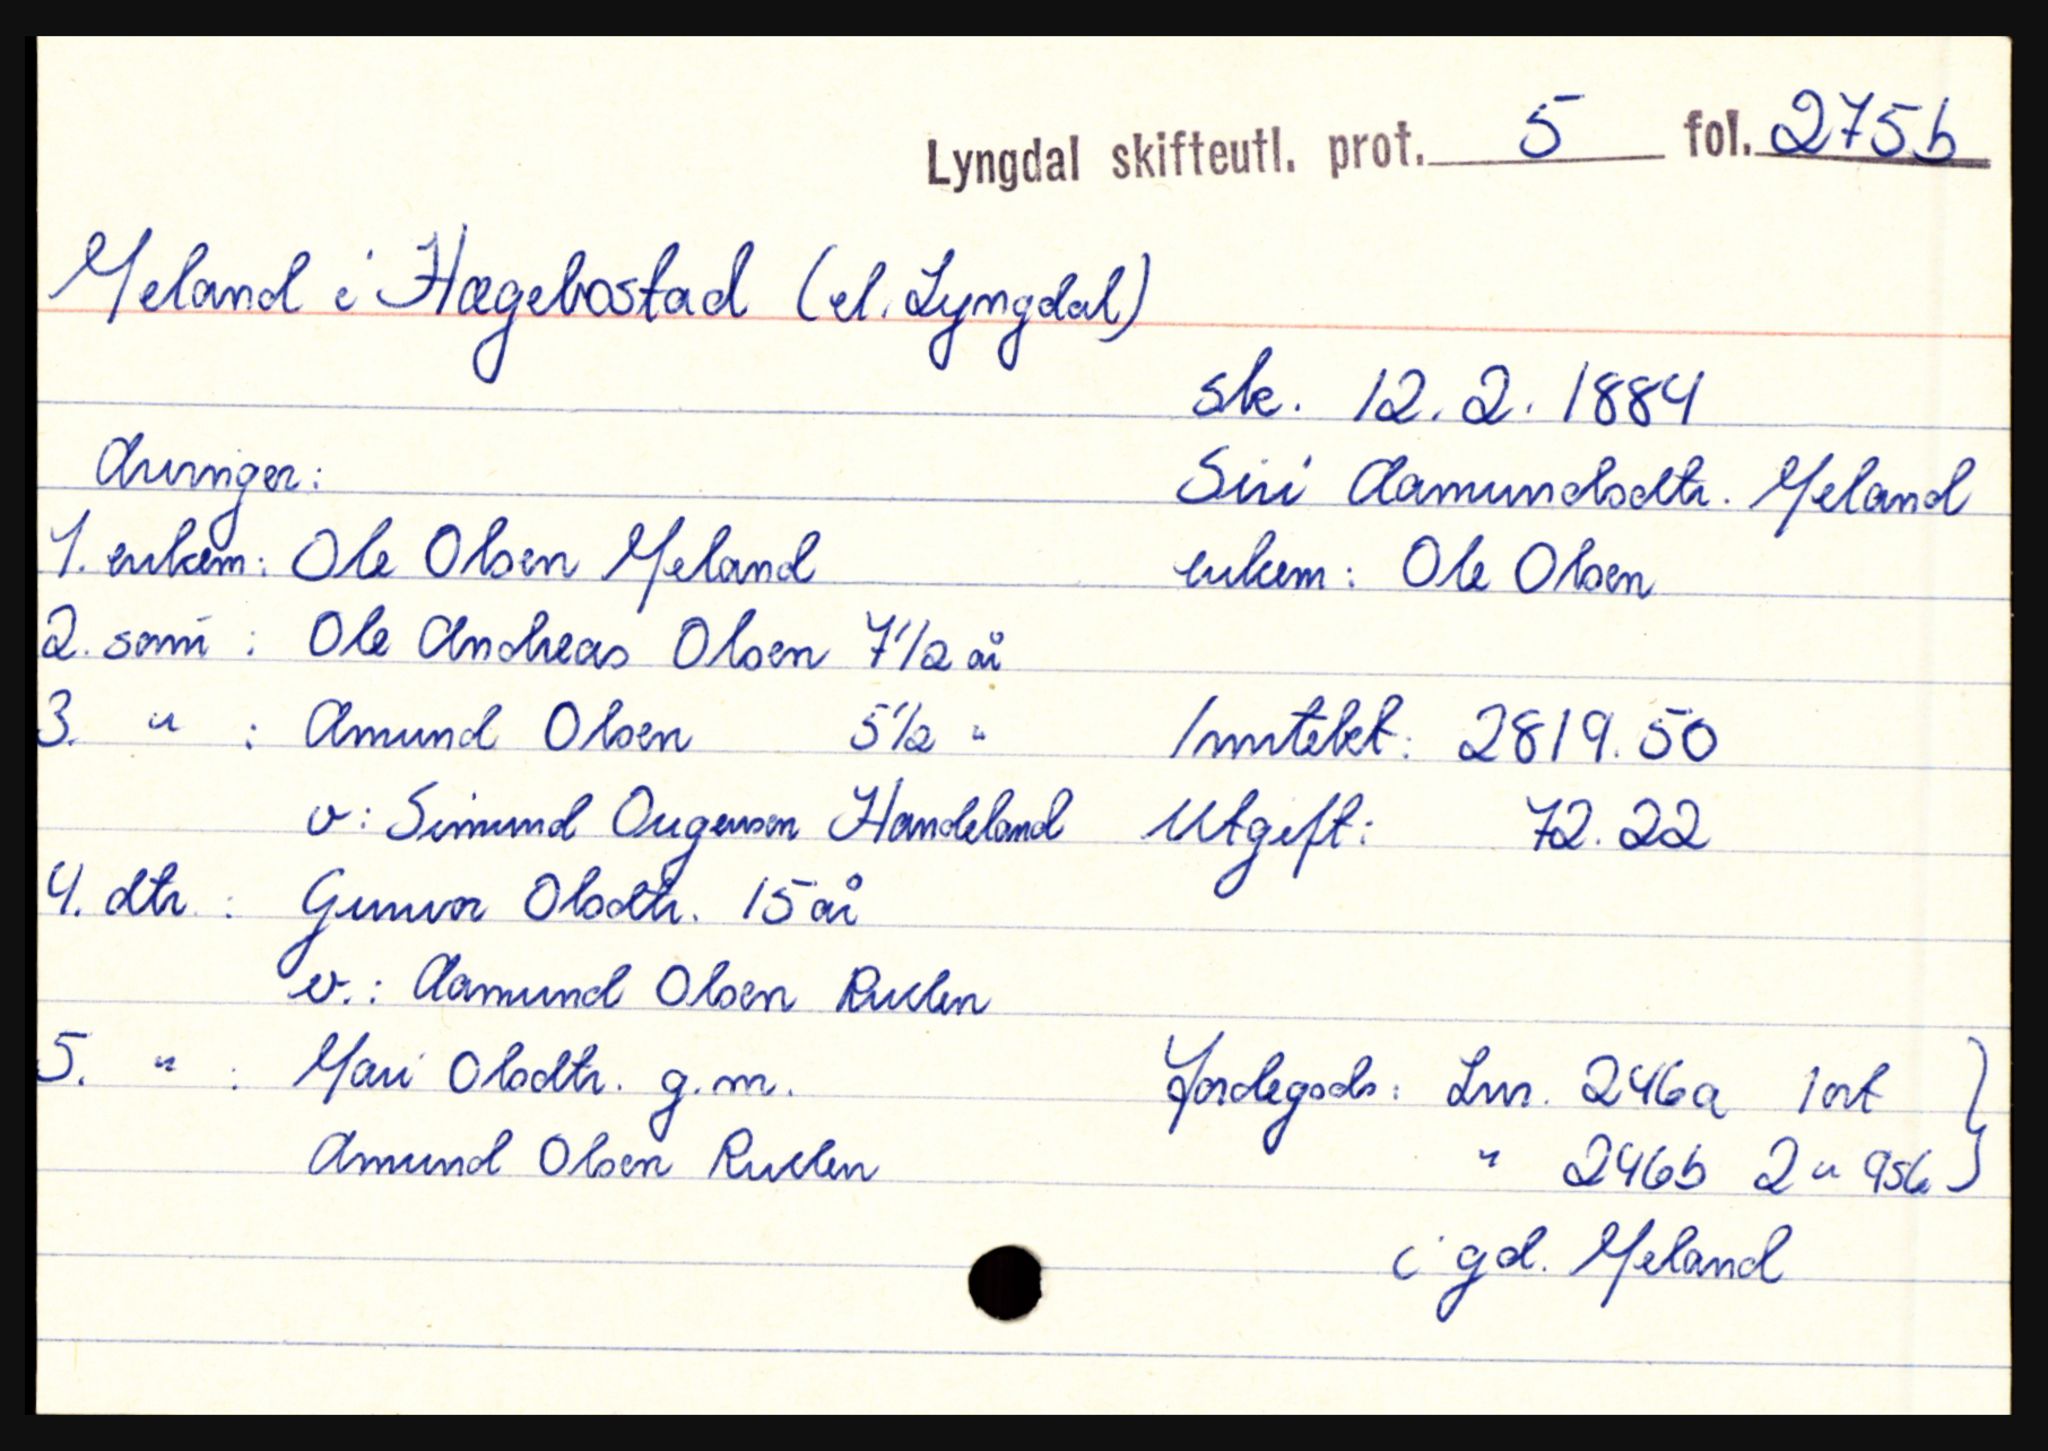 Lyngdal skifteutl. prot. 5 fol. 275b
Meland i Hægebostad (el. Lyngdal)
sk. 12.2.1884
Siri Aamundsdtr. Meland
enkem: Ole Olsen
Arvinger:
1. enkem: Ole Olsen Meland
2. sønn : Ole Andreas Olsen 7 1/2 år
3. " : Amund Olsen 5 1/2 "
v: Simund Ougensen Handeland
4. dtr. : Gunvor Olsdtr. 15 år
v.: Aamund Olsen Ruklen
5. " : Mari Olsdtr. g.m.
Amund Olsen Ruklen
Inntekt: 2819.50
Utgift: 72.22
Jordegods: Lnr. 246a 1 ort }
" 246b 2 " 9sk }
i gd. Meland